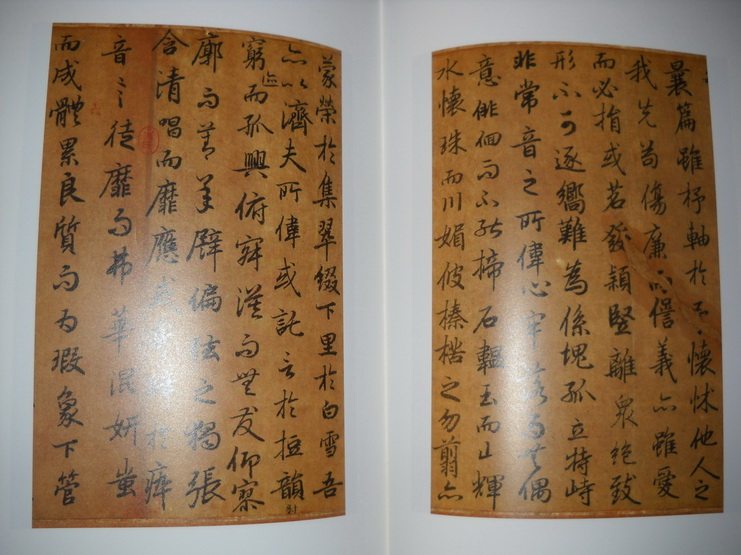 曩篇雖杼軸於予懷怵他人之
我先苟傷廉而愆義亦雖愛
而必捐或苕發穎竪離衆絕致
形不可逐嚮難為係塊孤立特峙
非常音之所偉心牢落而無偶
意俳佪而不能揥石韞玉而山輝
水懷珠而川媚彼榛楛之勿翦亦
蒙榮於集翠綴下里於白雪吾
亦以濟夫所偉或託言於短韻對
窮迹而孤興俯寂漠而無友仰寥
廓而莫承譬偏弦之獨張
含清唱而靡應或於瘁
音言徒靡而弗華混妍蚩
而成體累良質而為瑕象下管